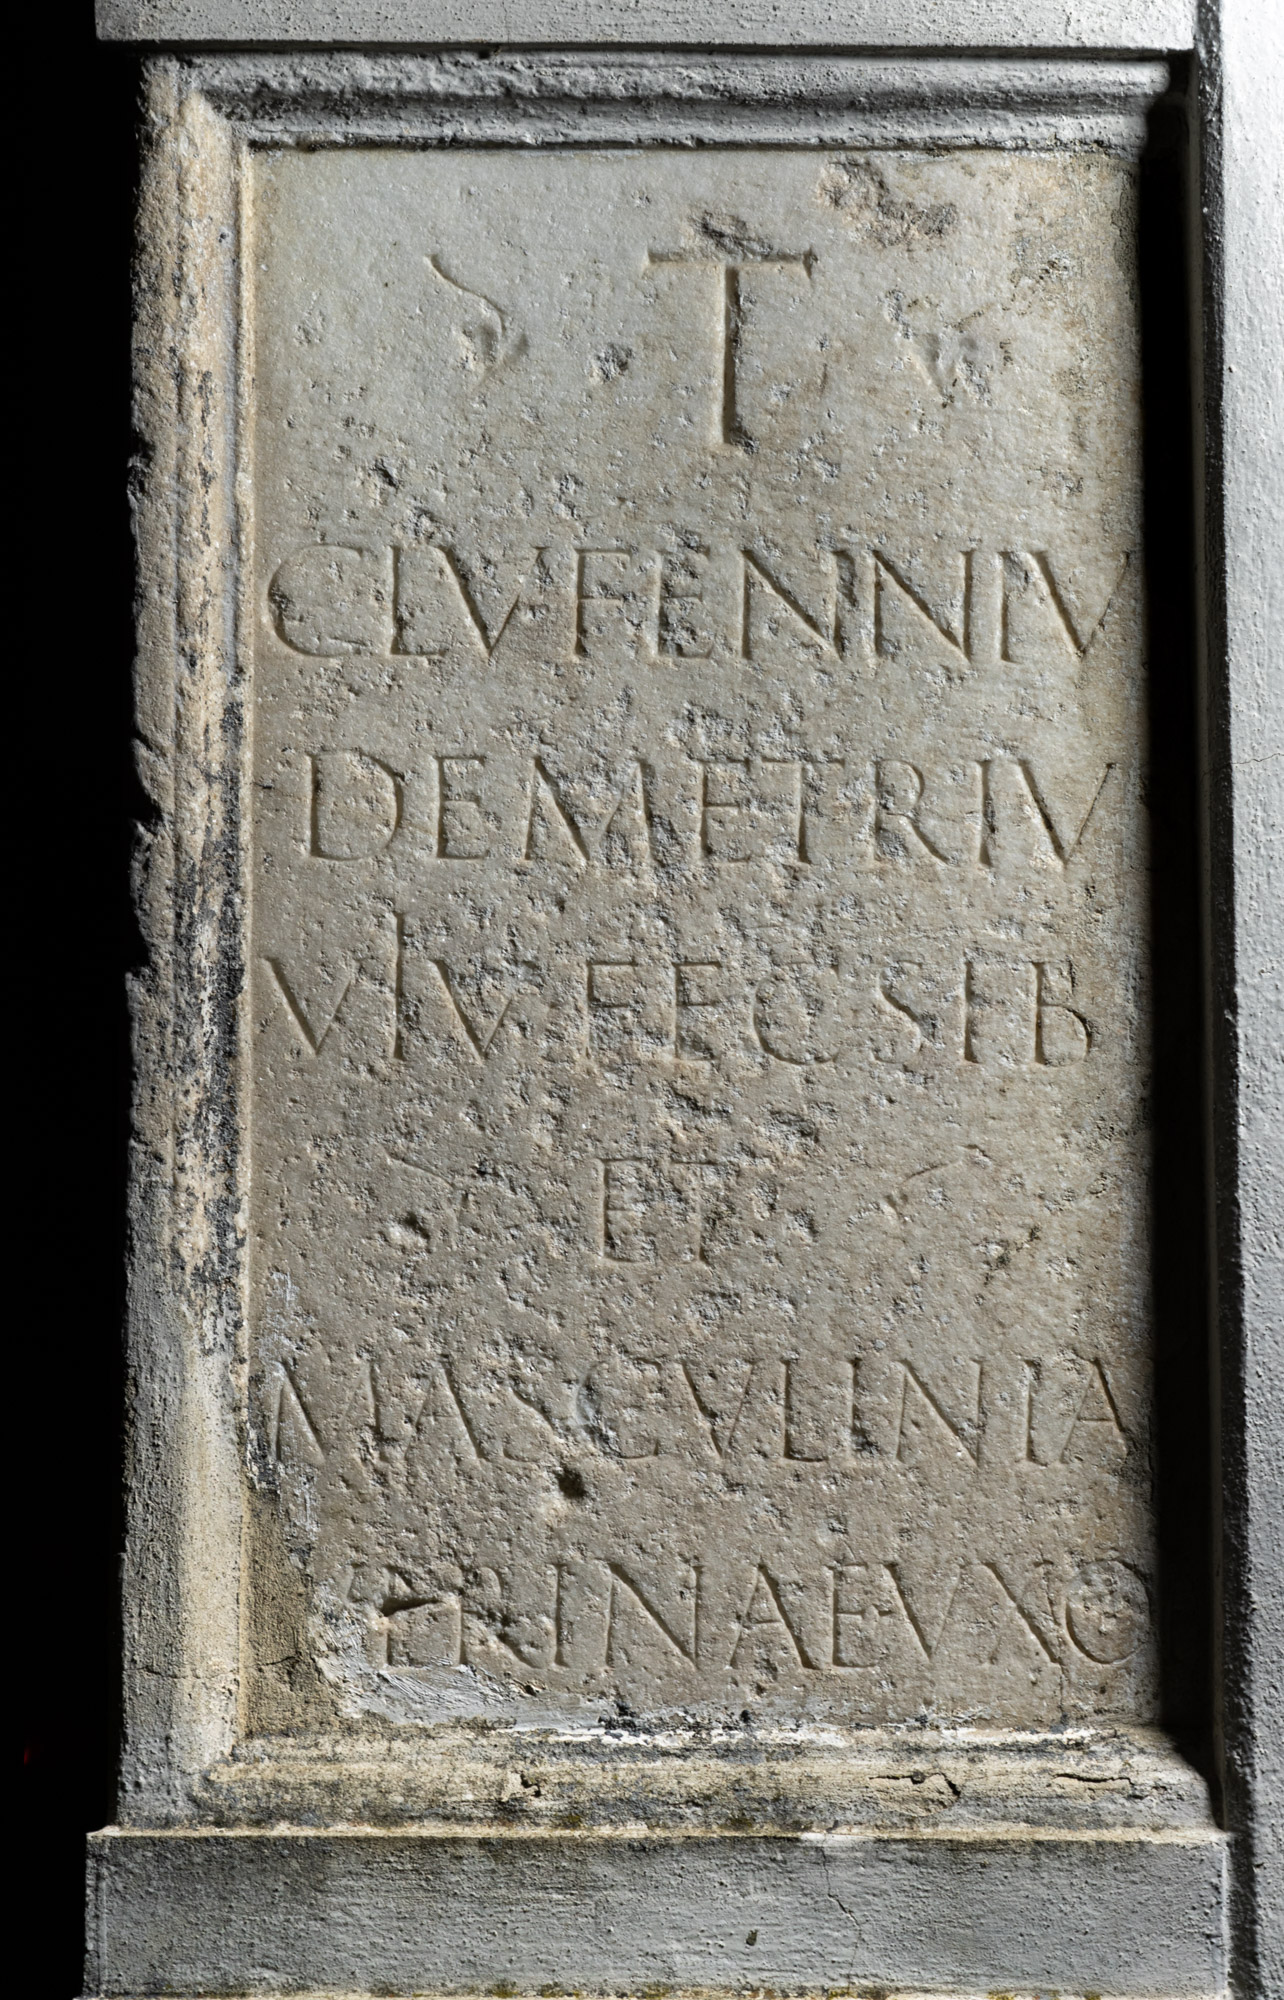 T
CLVFENNIV
DEMETRIV
VIV FEC SIB
ET
MASCVLINIA
PRINAE VXO